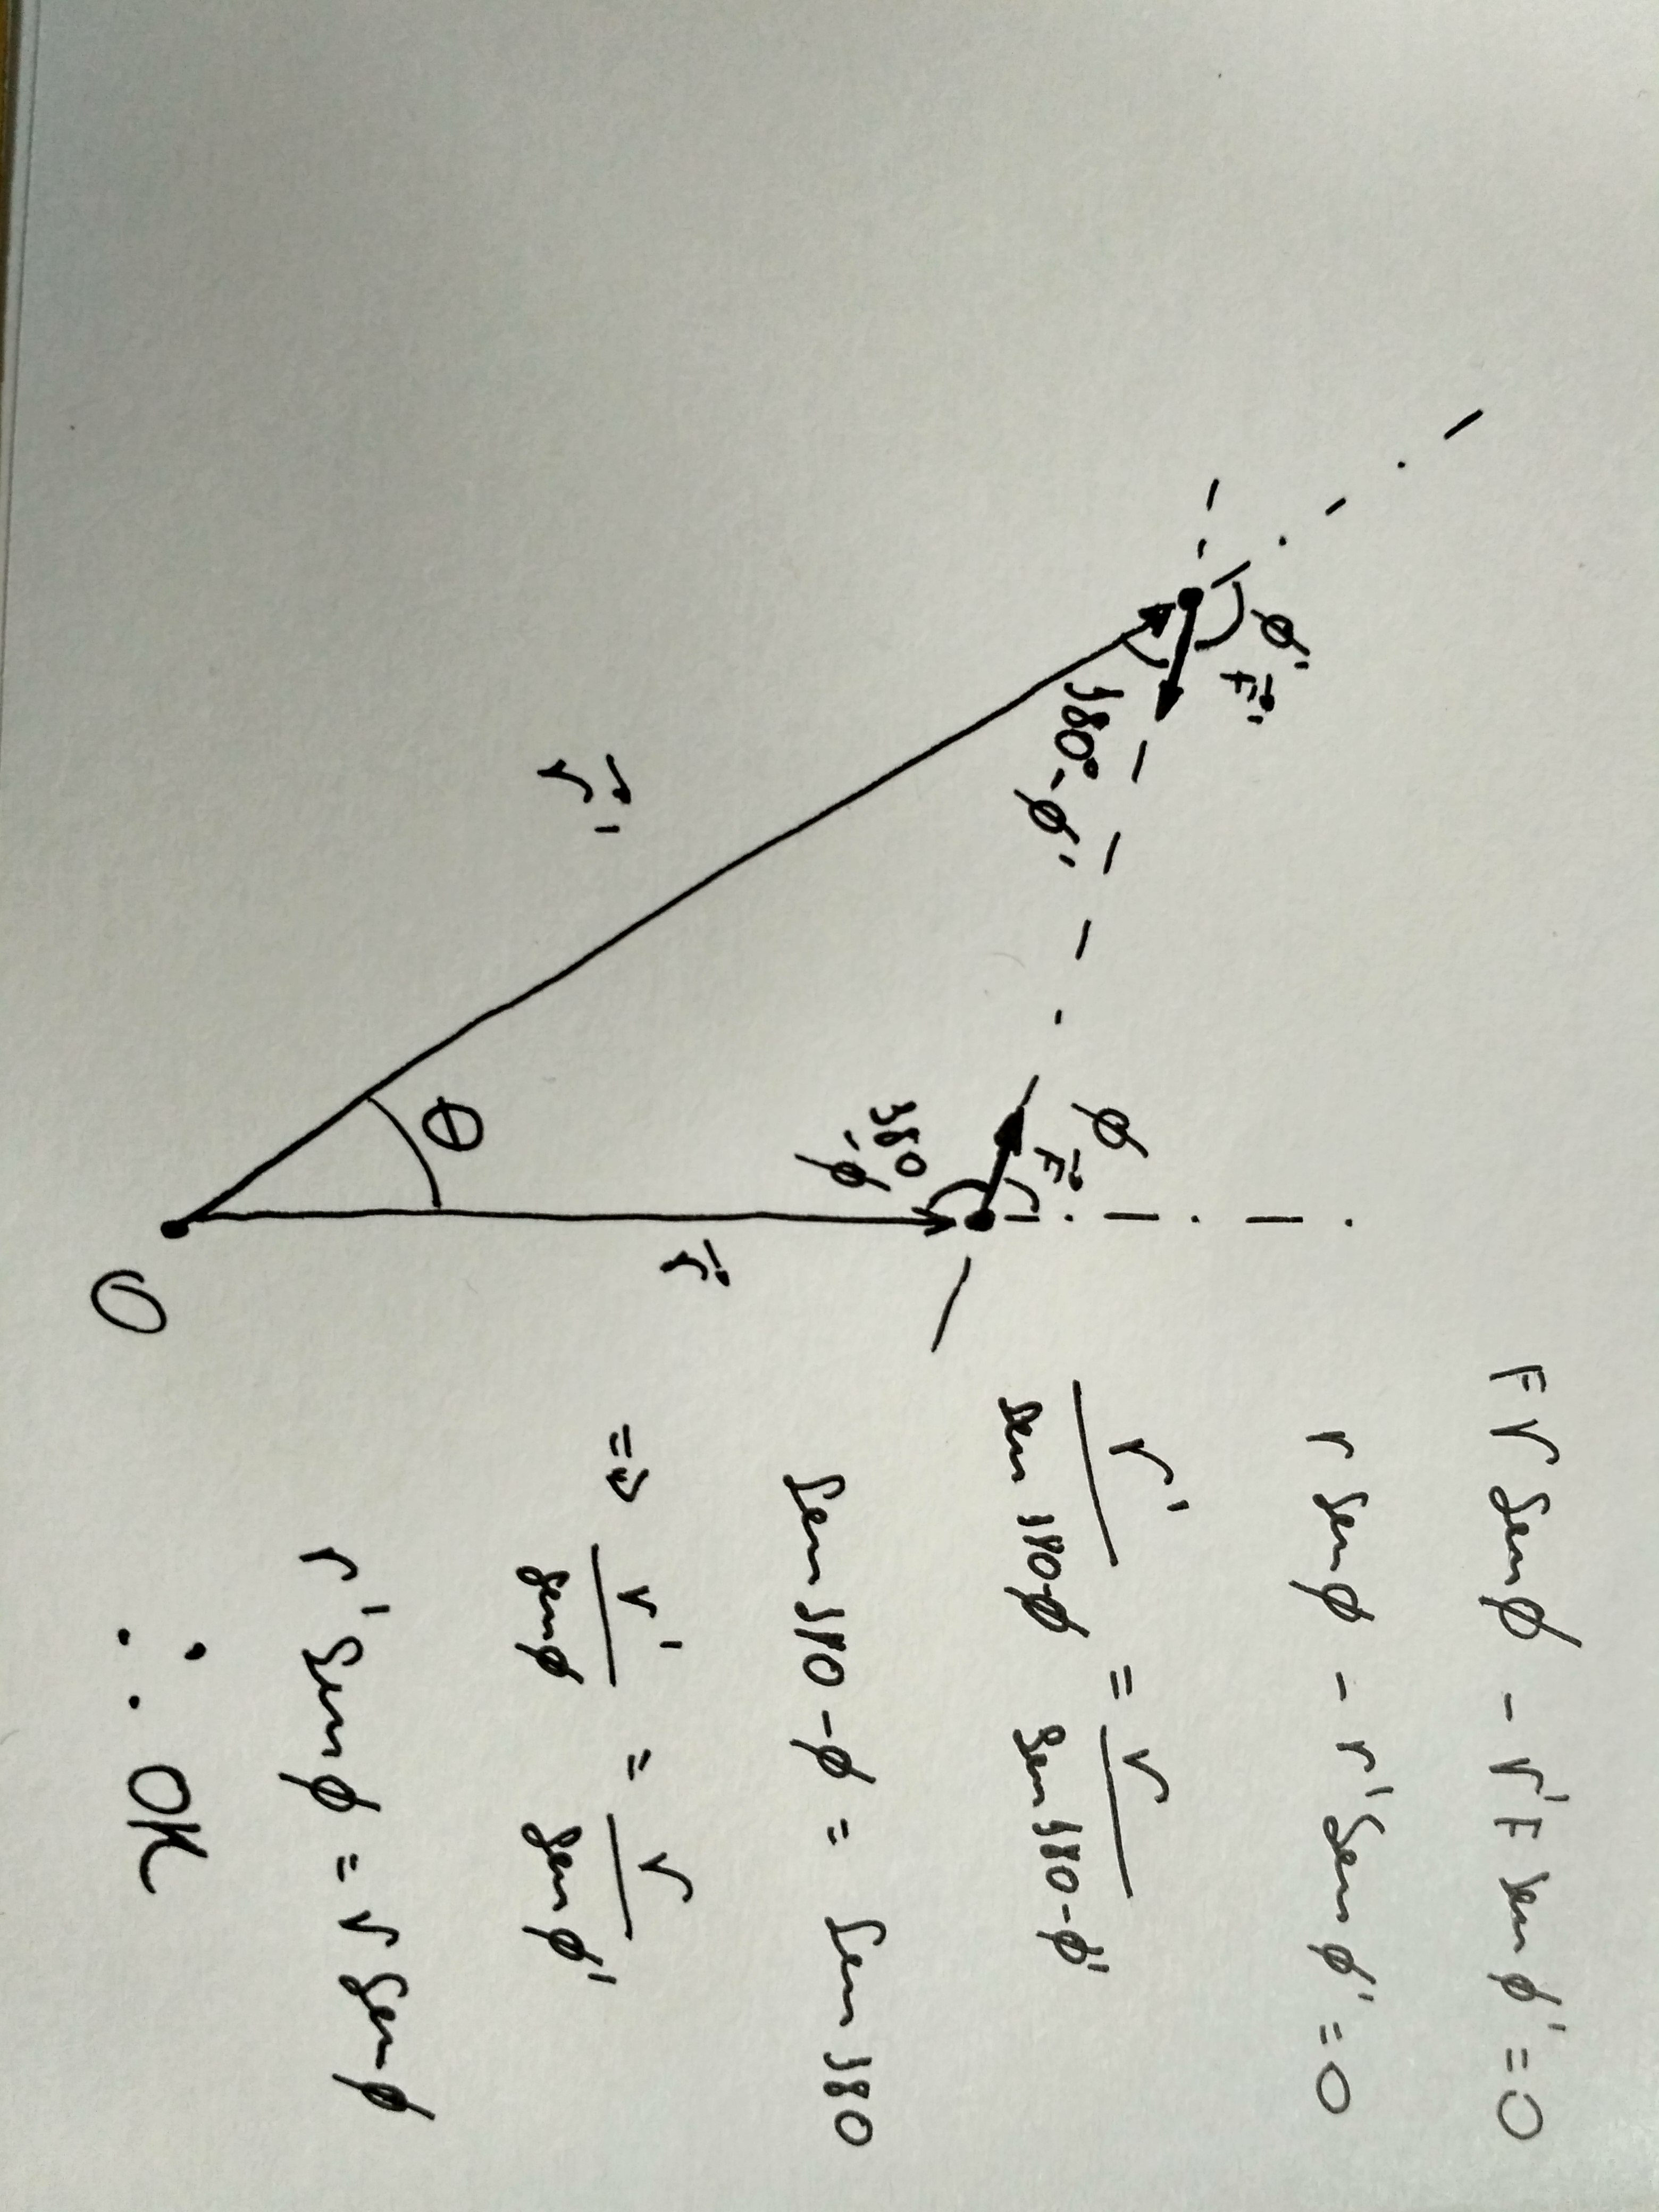 ϕ'
F⃗'
180°-ϕ'
r⃗'
ϕ
F⃗
180
-ϕ
θ
r⃗
O
F r sen ϕ - r'F sen ϕ' = 0
r sen ϕ - r' sen ϕ' = 0
r' / sen 180ϕ = r / sen 180-ϕ'
sen 180-ϕ = sen 180
=> r' / sen ϕ = r / sen ϕ'
r' sen ϕ = r sen ϕ
∴ OK